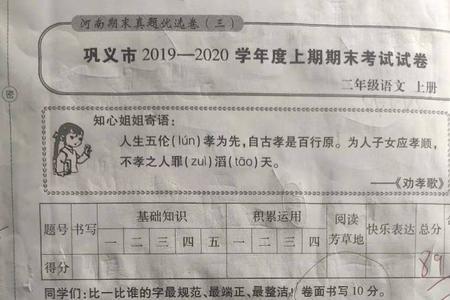 河南期末真题优选卷（三）
巩义市 2019—2020 学年度上期期末考试试卷
二年级语文 上册
密
知心姐姐寄语：
人生五伦(lún)孝为先，自古孝是百行原。为人子女应孝顺，
不孝之人罪(zuì)滔(tāo)天。
——《劝孝歌》
题号 书写 基础知识 积累运用 阅读芳草地 快乐表达 总分
一 二 三 四 五 一 二 三 四
得分 89
同学们：比一比谁的字最规范、最端正、最整洁！卷面书写10分。